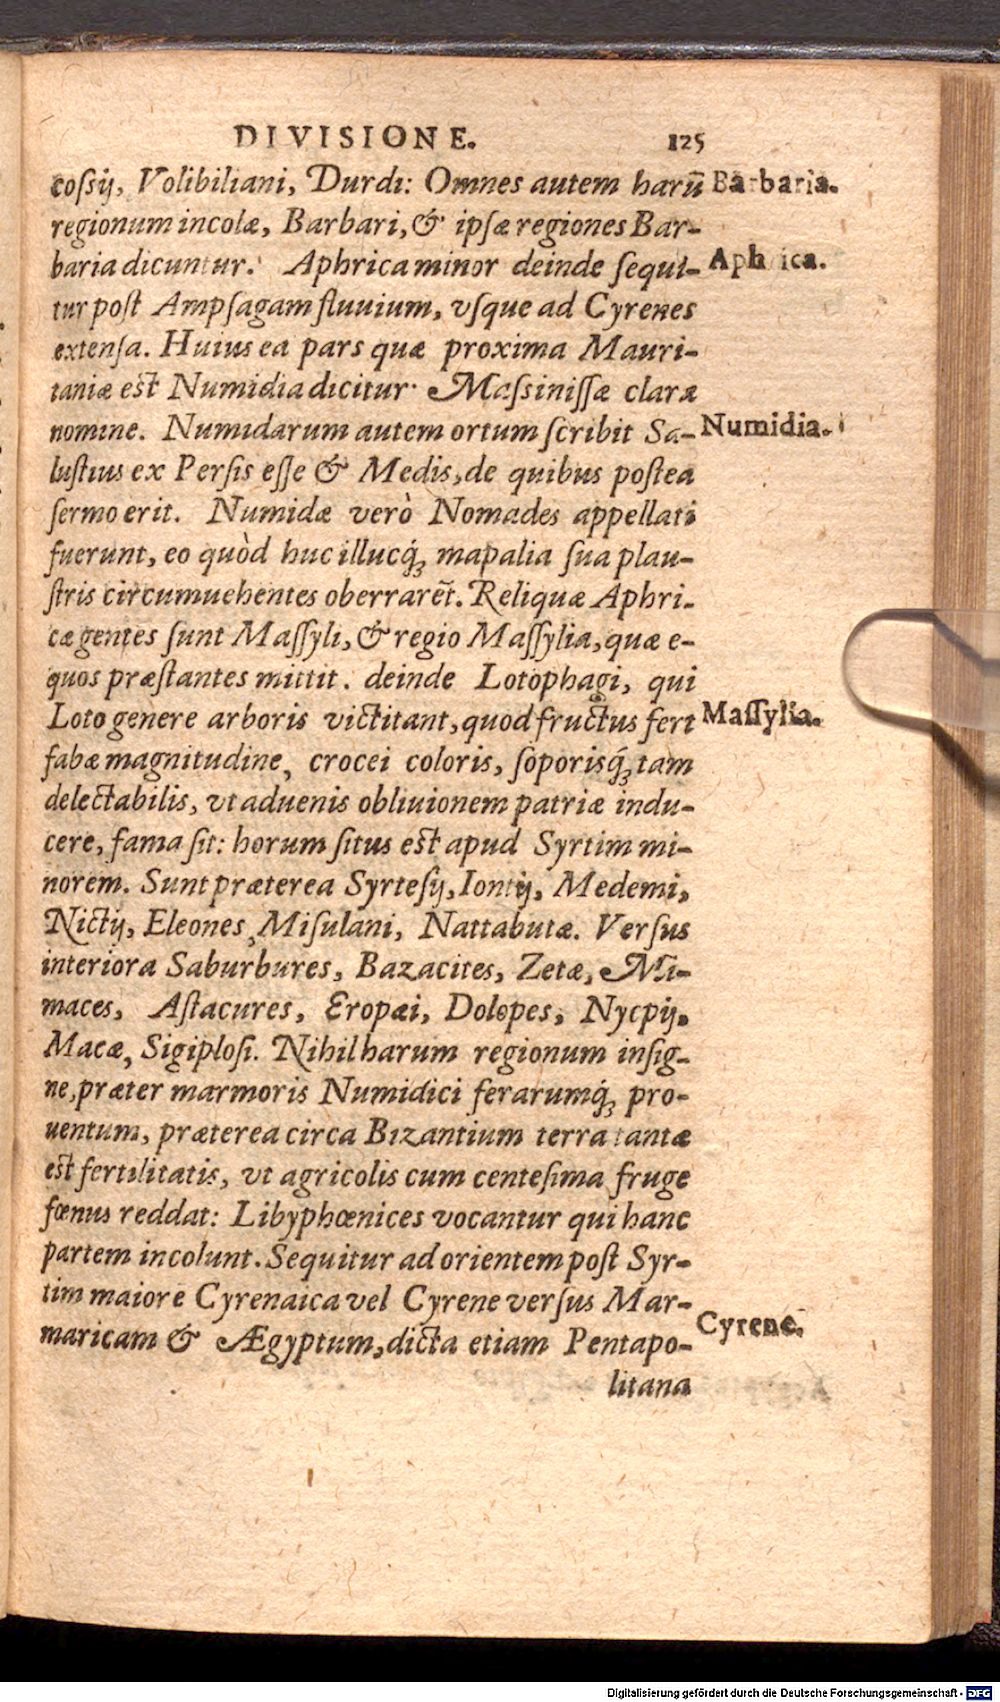 DIVISIONE. 125
coſsij, Volibiliani, Durdi: Omnes autem harū Barbaria.
regionum incolæ, Barbari, & ipſæ regiones Bar-
baria dicuntur. Aphrica minor deinde ſequi- Aphrica.
tur post Ampſagam fluuium, vſque ad Cyrenes
extenſa. Huius ea pars quæ proxima Mauri-
taniæ est Numidia dicitur· Maſsiniſſæ claræ
nomine. Numidarum autem ortum ſcribit Sa- Numidia.
luſtius ex Perſis eſſe & Medis, de quibus poſtea
ſermo erit. Numidæ verò Nomades appellati
fuerunt, eo quòd huc illucq́ꝫ mapalia ſua plau-
ſtris circumuehentes oberrarēt. Reliquæ Aphri-
cæ gentes ſunt Maſſyli, & regio Maſſylia, quæ e-
quos præſtantes mittit. deinde Lotophagi, qui
Loto genere arboris victitant, quod fructus fert Maſſylia.
fabæ magnitudine, crocei coloris, ſoporisq́ꝫ tam
delectabilis, vt aduenis obliuionem patriæ indu-
cere, fama ſit: horum ſitus est apud Syrtim mi-
norem. Sunt præterea Syrteſij, Iontij, Medemi,
Nictij, Eleones, Miſulani, Nattabutæ. Verſus
interiora Saburbures, Bazacites, Zetæ, Mi-
maces, Aſtacures, Eropæi, Dolopes, Nycpij,
Macæ, Sigiploſi. Nihil harum regionum inſig-
ne, præter marmoris Numidici ferarumq́ꝫ pro-
uentum, præterea circa Bizantium terra tantæ
est fertilitatis, vt agricolis cum centeſima fruge
fœnus reddat: Libyphœnices vocantur qui hanc
partem incolunt. Sequitur ad orientem poſt Syr-
tim maiore Cyrenaica vel Cyrene verſus Mar- Cyrene.
maricam & Ægyptum, dicta etiam Pentapo-
litana
Digitalisierung gefördert durch die Deutsche Forschungsgemeinschaft - DFG